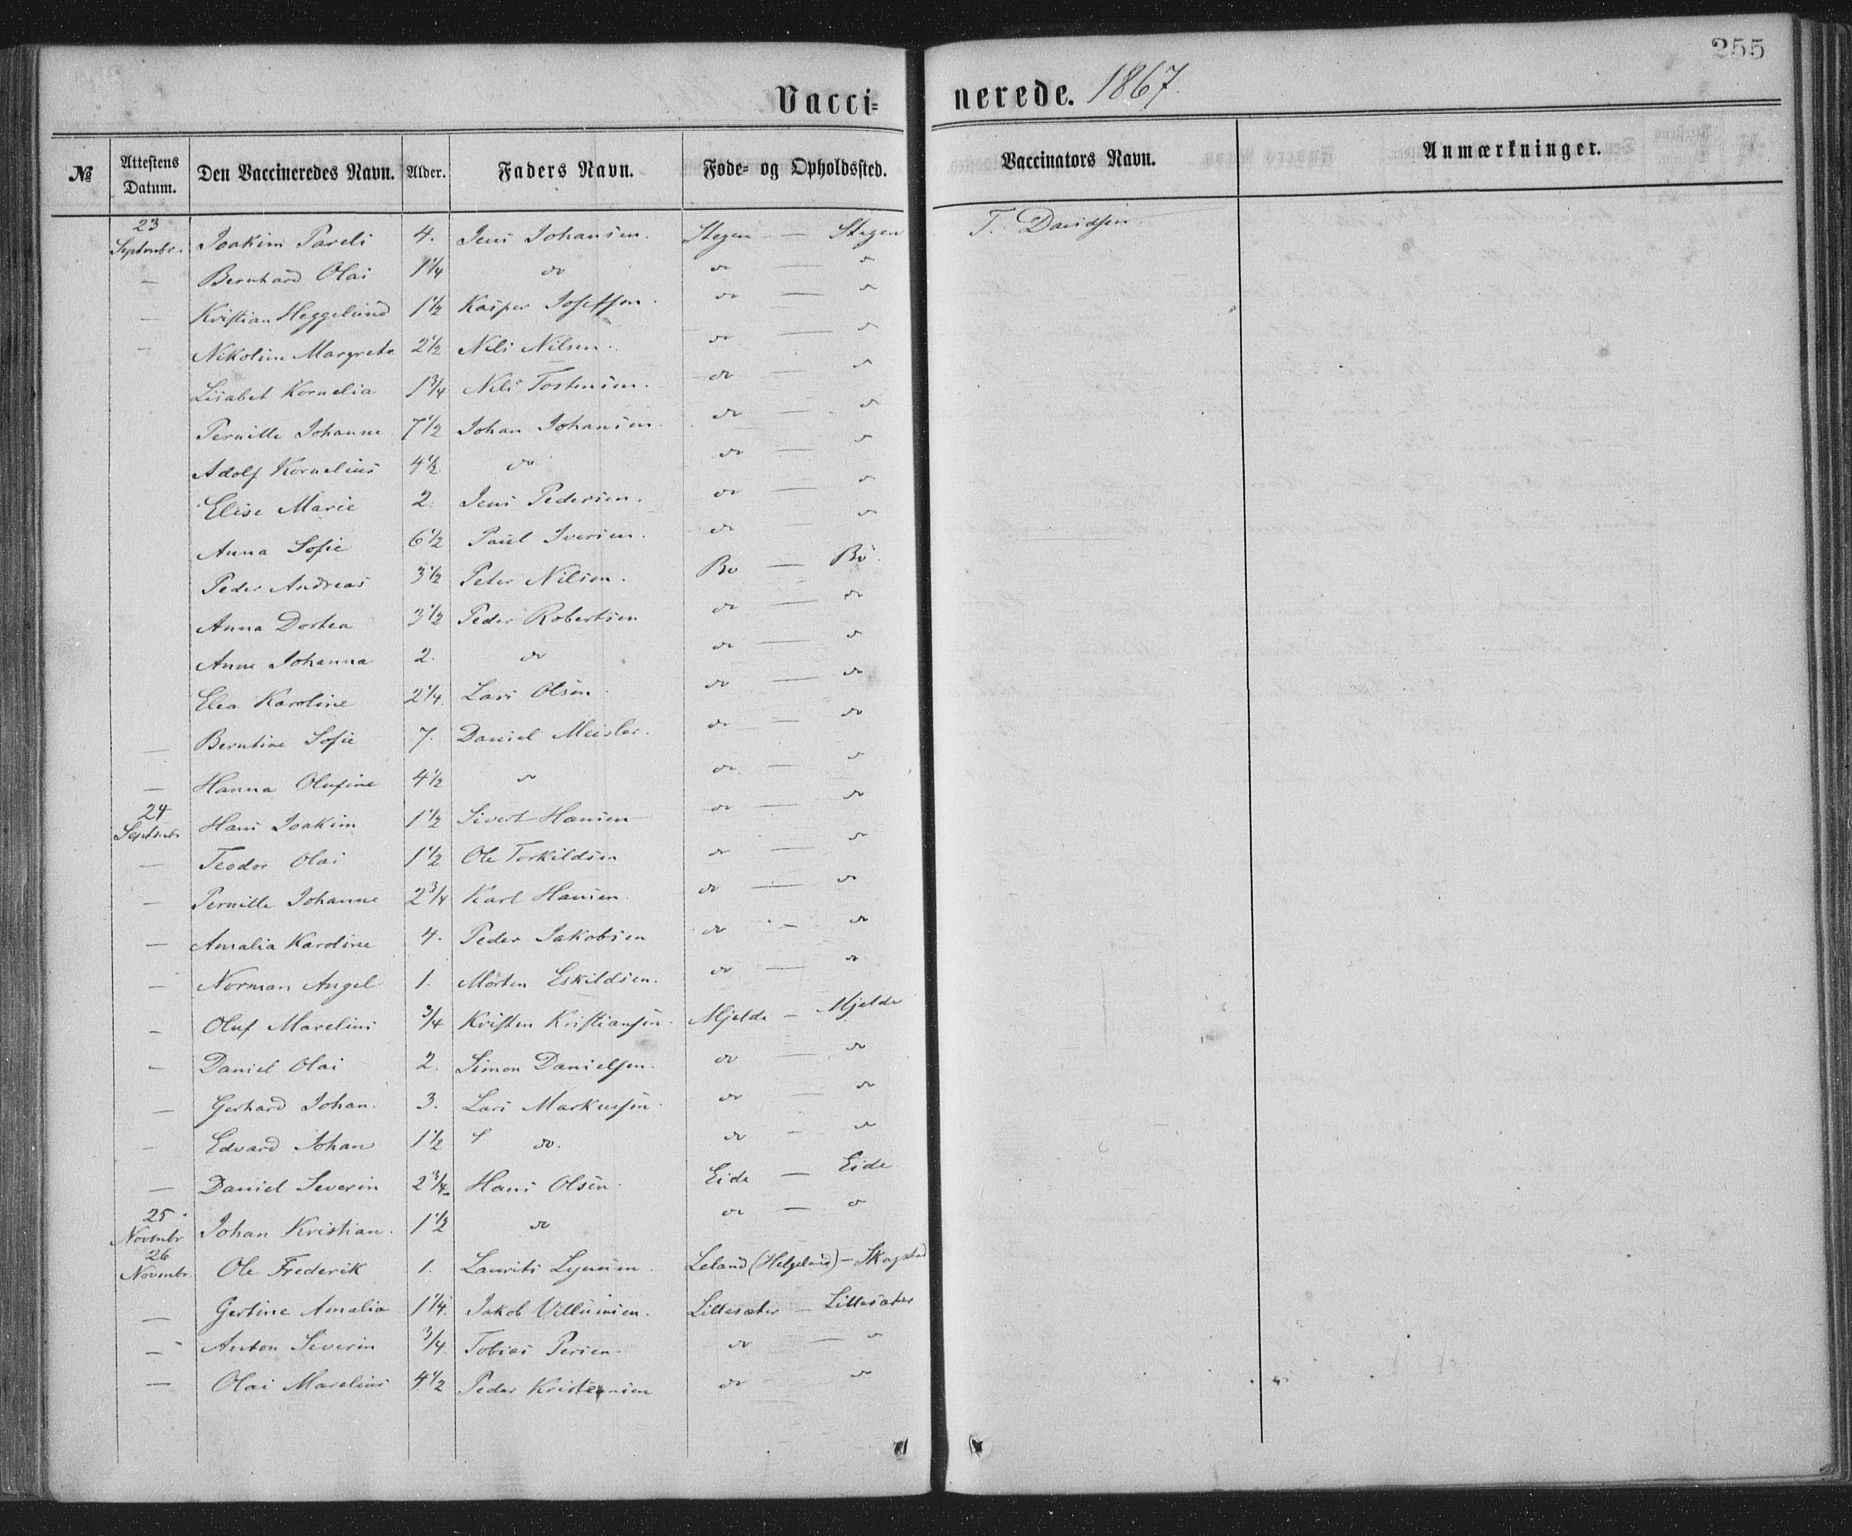 255
Vacci= nerede. 1867.
№ Attestens Datum. Den Vaccineredes Navn. Alder. Faders Navn. Føde- og Opholdssted. Vaccinators Navn. Anmærkninger.
23 Septembr. Joakim Pareli 4. Jens Johansen. Stegen — Stegen T. Davidsen.
— Bernhard Olai 1 1/4 do do — do
— Kristian Heggelund 1 1/2 Kasper Josefsen. do — do
— Nikoline Margrete 2 1/2 Nils Nilsen. do — do
Lisabet Kornelia 1 3/4 Nils Tostensen. do — do
Pernille Johanne 7 1/2 Johan Johansen. do — do
Adolf Kornelius 4 1/2 do do — do
Elise Marie 2. Jens Pedersen. do — do
Anna Sofie 6 1/2 Paul Iversen. do — do
Peder Andreas 3 1/2 Peter Nilsen. Bø — Bø.
Anna Dortea 3 1/2 Peder Robertsen do — do
Anne Johanna 2. do do — do
Elea Karoline 2 1/4. Lars Olsen. do — do
— Berntine Sofie 7. Daniel Meisler. do — do
— Hanna Olufine 4 1/2 do do — do
24 Septembr Hans Joakim 1 1/2 Sivert Hansen do — do
— Teodor Olai 1 1/2 Ole Torkildsen do — do
— Pernille Johanne 2 3/4 Karl Hansen. do — do
— Amalia Karoline 4. Peder Jakobsen do — do
— Norman Angel 1. Morten Eskildsen. do — do
— Oluf Marelius 3/4 Kristen Kristiansen. Mjelde — Mjelde
— Daniel Olai 2. Simon Danielsen. do — do
— Gerhard Johan. 3. Lars Markussen. do — do
— Edvard Johan 1 1/2 do. do — do
— Daniel Severin 2 3/4 Hans Olsen. Eide — Eide
25 Novembr Johan Kristian. 1 1/2 do do — do
26 Novembr. Ole Frederik 1. Laurits Leland (Helgeland) — Skogstad
— Gertine Amalia 1 1/4. Jakob Villumsen. Lillesæter — Lillesæter
— Anton Severin 3/4 Tobias Persen. do — do
— Olai Marelius 4 1/2 Peder Kristensen do do